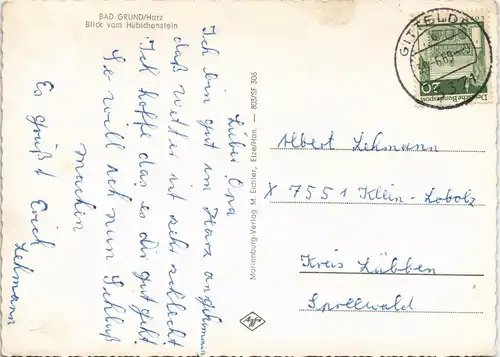 BAD GRUND/Harz
Blick vom Hübichenstein
Lieber Opa
Ich bin gut im Harz angekommen
daß wetter ist sehr schlecht
Ick hoffe das es dir gut geht
So will ich nun Schluß
machen
Es grüßt Erich
Lehmann
Marienburg-Verlag M. Eichler, Elze/Han. — 803/SF 306
Agfa
GITTELDE
20
Deutsche Bundespost
Albert Lehmann
X 7551 Klein-Lobolz
Kreis Lübben
Spreewald